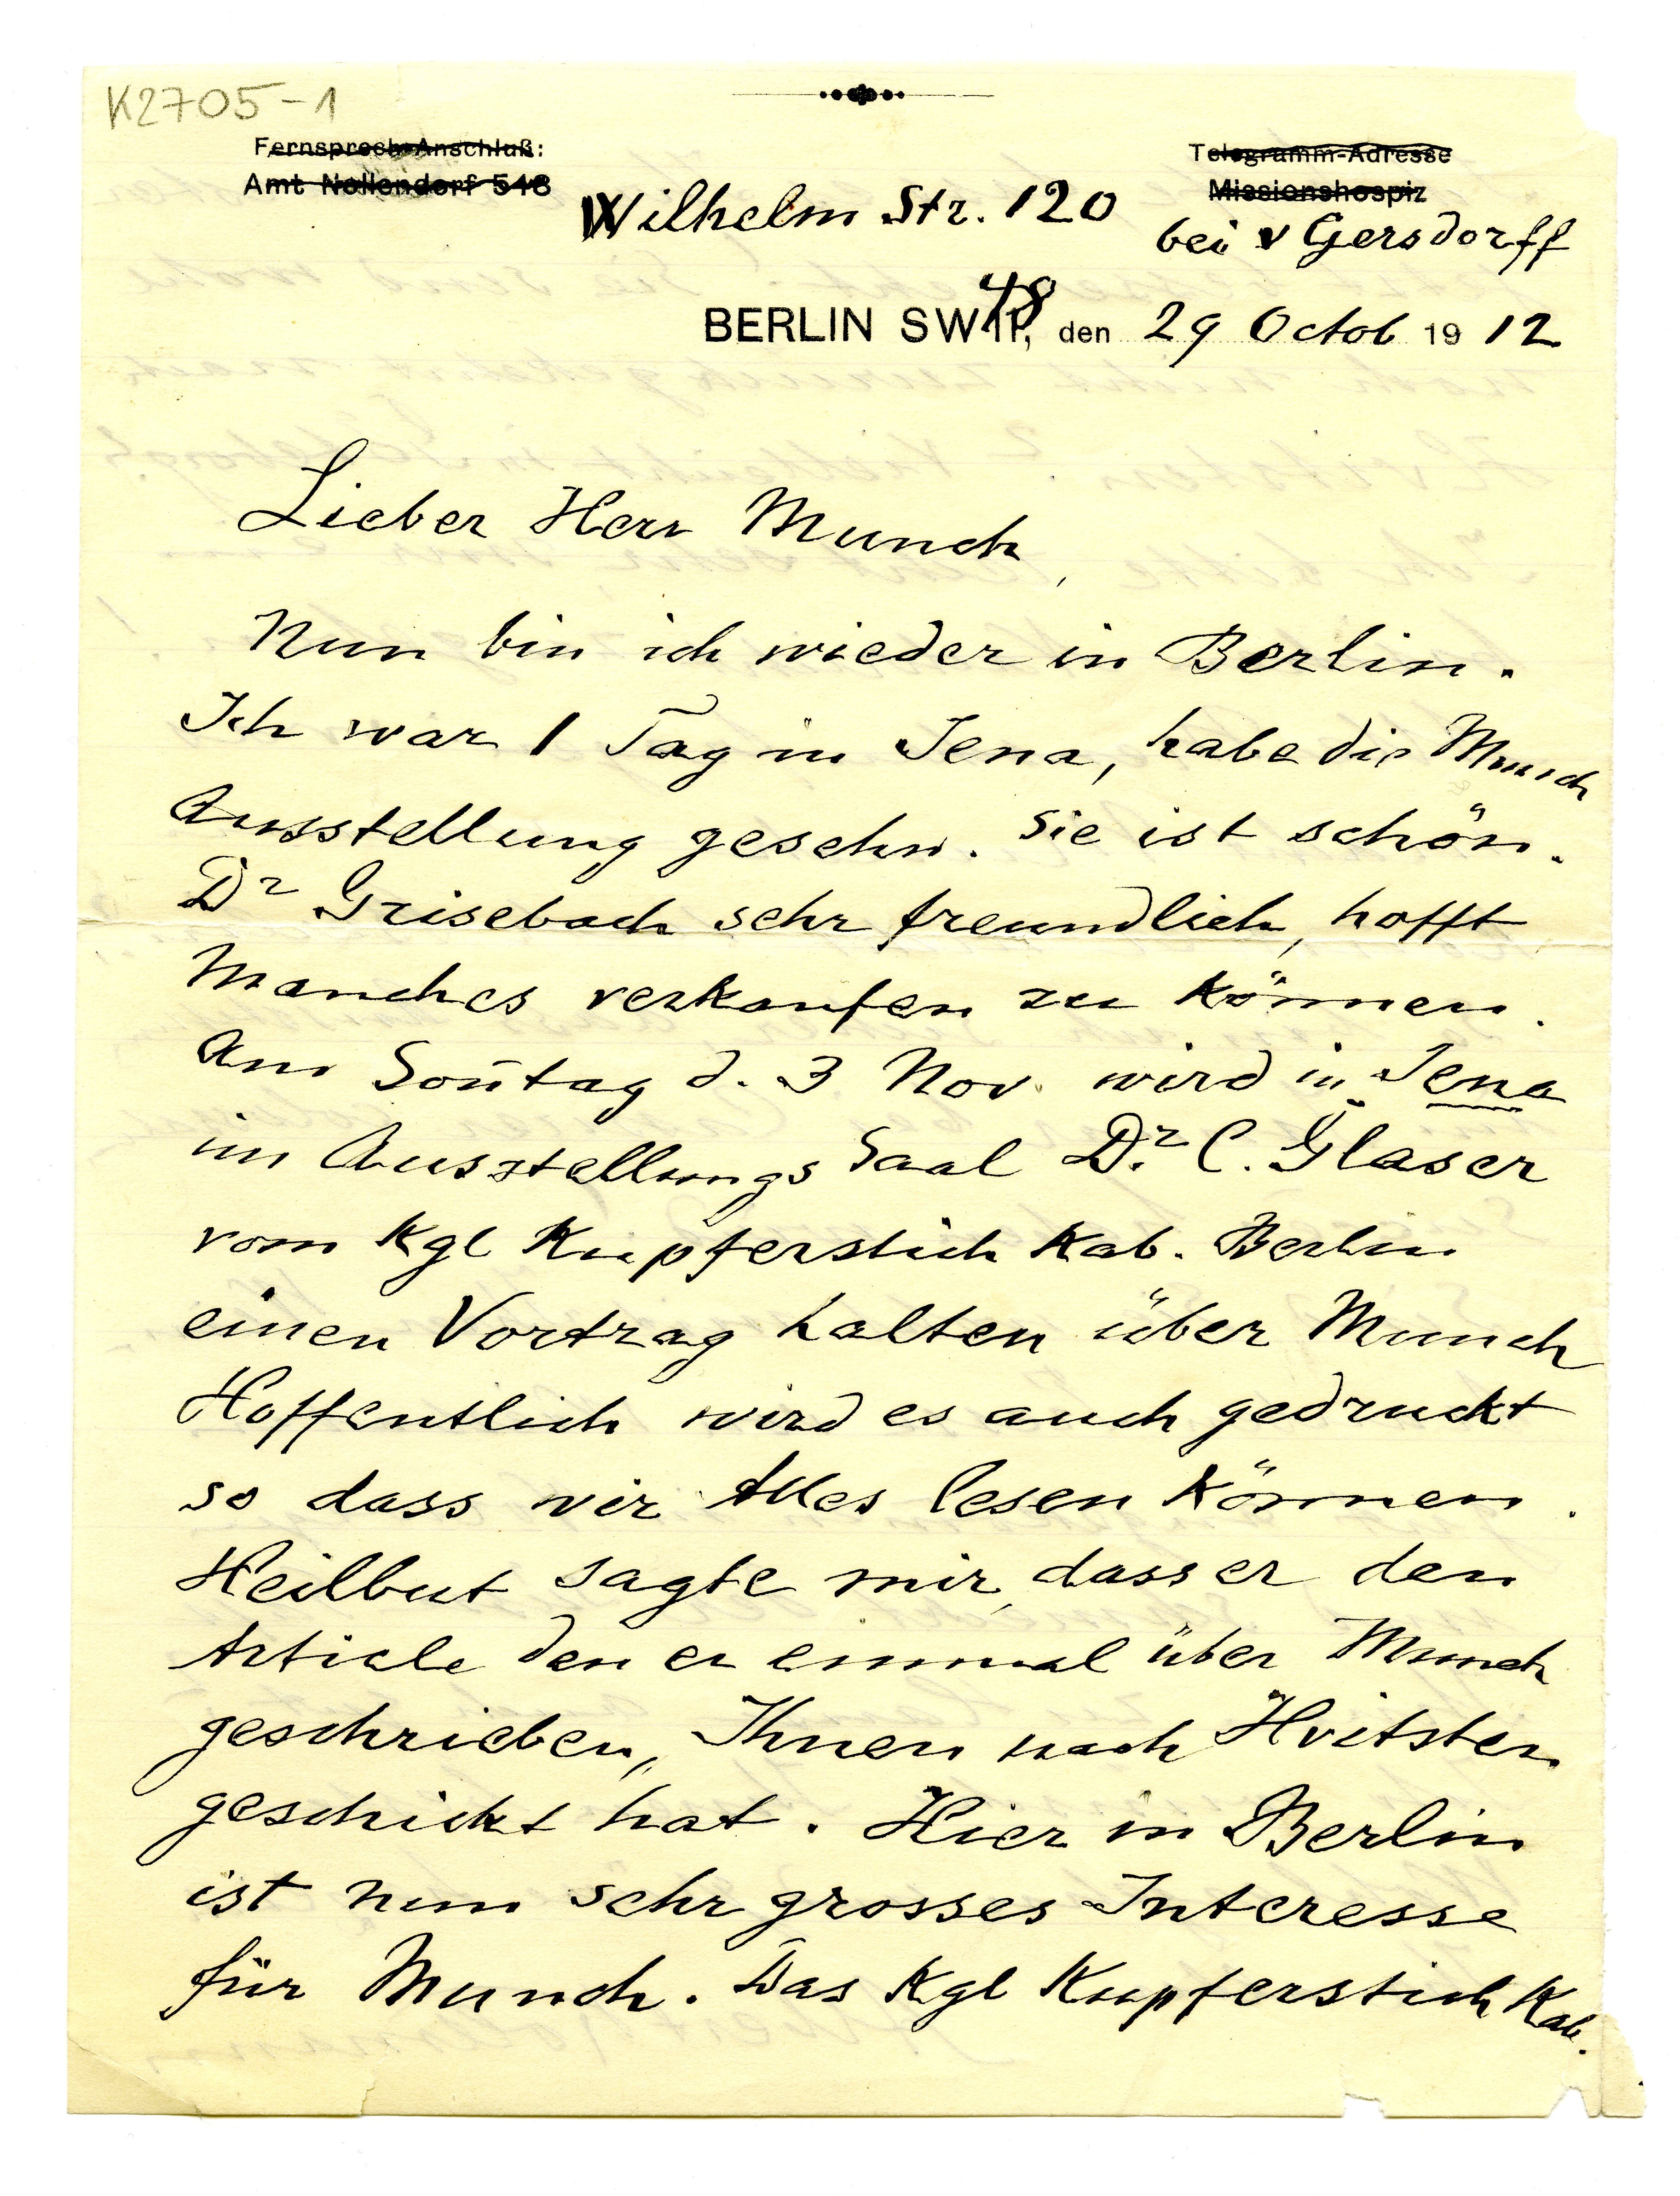 K2705-1
Fernsprech-Anschluß:
Amt Nollendorf 548
Telegramm-Adresse
Missionshospiz
Wilhelm Str. 120
bei v Gersdorff
BERLIN SW 48, den 29 Octob 1912
Lieber Herr Munch,
Nun bin ich wieder in Berlin.
Ich war 1 Tag in Jena, habe die Munch
Ausstellung gesehn. Sie ist schön.
Dr Grisebach sehr freundlich, hofft
Manches verkaufen zu können.
Am Soñtag d. 3 Nov. wird in Jena
im Ausstellungs Saal Dr. C. Glaser
vom Kgl Kupferstich Kab. Berlin
einen Vortrag halten über Munch
Hoffentlich wird es auch gedruckt
so dass wir Alles lesen können.
Heilbut sagte mir, dass er den
Article den er einmal über Munch
geschrieben, Ihnen nach Hvitsten
geschickt hat. Hier in Berlin
ist nun sehr grosses Interesse
für Munch. Das Kgl Kupferstich Kab.